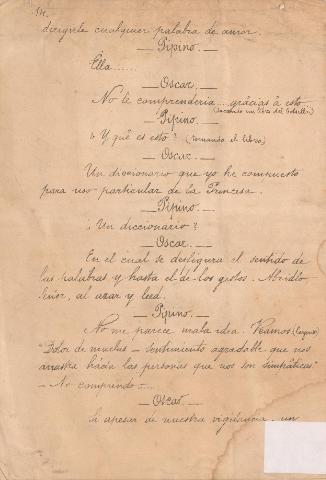 14.
dirigirle cualquier palabra de amor.
— Pipino. —
Ella......
— Oscar. —
No le comprendería... gracias á esto
(sacando un libro del bolsillo)
— Pipino. —
¿Y qué es esto? (tomando el libro)
— Oscar. —
Un diccionario que yo he compuesto
para uso particular de la Princesa.
— Pipino. —
¿Un diccionario?
— Oscar. —
En el cual se desfigura el sentido de
las palabras y hasta el de los gestos. Abridlo
Señor, al azar y leed.
— Pipino. —
No me parece mala idea. Veamos (leyendo)
"Dolor de muelas — sentimiento agradable que nos
arrastra hacia las personas que nos son simpáticas"
— No comprendo —...
— Oscar. —
Si apesar de nuestra vigilancia, un